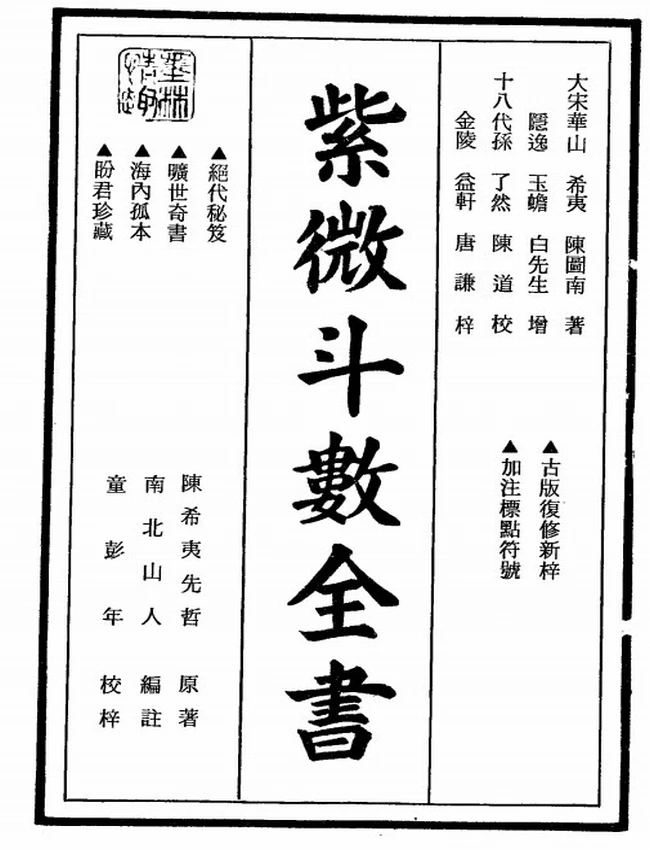 大宋華山　希夷　陳圖南　著
隱逸　玉蟾　白先生　增
十八代孫　了然　陳道　校
金陵　益軒　唐謙　梓
▲古版復修新梓
▲加注標點符號
紫微斗數全書
▲絕代秘笈
▲曠世奇書
▲海內孤本
▲盼君珍藏
陳希夷先哲　原著
南北山人　編註
童彭年　校梓